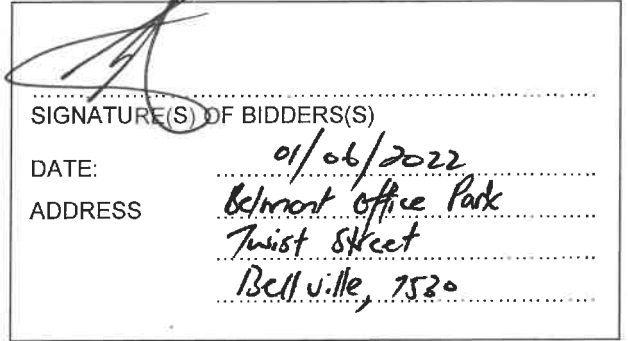 SIGNATURE(S) OF BIDDERS(S)
DATE: 01/06/2022
ADDRESS Belmont Office Park
Twist Street
Bellville, 7530